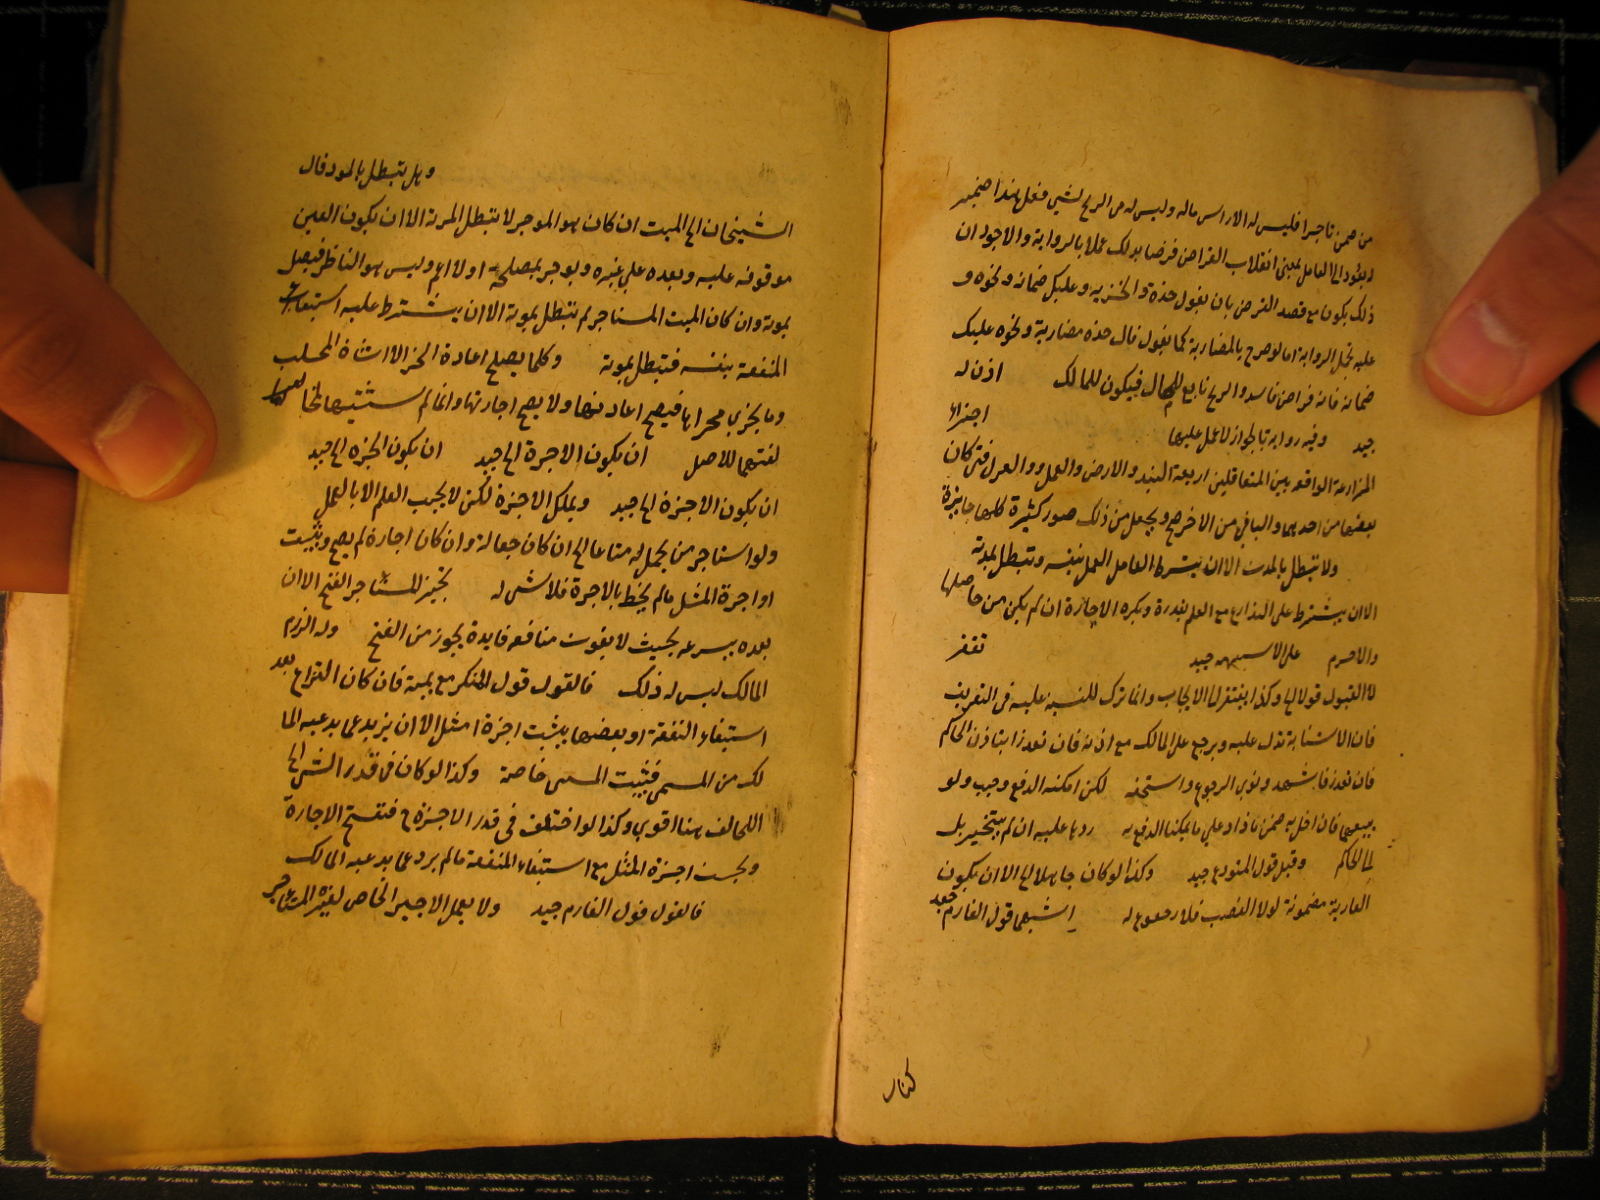 من ضمن تاجرا فليس له الا راس ماله وليس له من الربح لشي فعل بهذا
ويعود الى العامل بمعنى انقلاب القراض قرضا بذلك عملا بالرواية والاجود ان
ذلك يكون مع قصد القرض بان يقول خذه والخزيه وعليك ضمانه ونحوه و
عليه تحمل الرواية اما لو صرح بالمضاربة كما يقول قال خذه مضاربة ونحوه عليك
ضمانه فانه قراض فاسد والربح تابع للمال فيكون للمالك اذن له
جيد وفيه رواية بالجواز لا عمل عليها اجزاء
المزارعة الواقعه بين المتعاقلين اربعة البذر والارض والعمل والعوامل فتى كان
بعضها من احدهما والباقي من الاخر صح ويحصل من ذلك صور كثيرة كلها جايزة
ولا تبطل بالموت الا ان يشترط العامل العمل بنفسه وتبطل بموته
الا ان يشترط على الزارع مع العلم بقدرة ويكره الاجارة ان لم يكن من حاصلها
والا حرم على الاشبه جيد تفتقر
لا القبول قولا الخ وكذا يفتقر الى الايجاب وانما ترك للتنبيه عليه في التعريف
فان الاستنابة تدل عليه ويرجع على المالك مع اذنه فان تعذر استاذن الحاكم
فان تعذر فاشهد ونوى الرجوع واستحقه لكن امكنه الدفع وجب ولو
ببعضها فان اخل به ضمن ما زاد على ما يمكنه الدفع به ردها عليه ان لم يتخير بل
الى الحاكم وقبل قول المستودع جيد وكذا لو كان جاهلا الخ الا ان يكون
العارية مضمونة لولا الغصب فلا رجوع له اشبهها قول الغارم جيد
كتاب
وهل تبطل بالموت قال
الشيخان الخ الميت ان كان هو الموجر لا تبطل الموته الا ان يكون العين
موقوفه عليه وبعده على غيره ويوجر لمصلحة اولا ام وليس هو الناظر فيبطل
بموته وان كان الميت المستاجر لم تبطل بموته الا ان يشترط عليه استيفاء
المنفعة بنفسه فتبطل بموته وكلما يصح اعادة الخ الا الشاة المحلب
وما يجري مجراها فيصح اعارتها ولا يصح اجارتها وانما لم يستثنيها
لفتهما للاصل ان يكون الاجرة الخ جيد ان يكون الجزه الخ جيد
ان يكون الاجزة الخ جيد ويملك الاجزة لكن لا يجب العلم الا بالعمل
ولو استاجر من يحمل له متاعا الخ ان كان جعالة وان كان اجارة لم يصح ويثبت
اواجرة المثل ما لم يخط بالاجرة فلا شي له تخير للمستاجر الفسخ الا ان
بعده بسرعه بحيث لا يفوت منافعه فايدة يجوز من الفسخ وله الزم
المالك ليس له ذلك فالقول قول المنكر مع يمينه فان كان النزاع بعد
استيفاء النفقة او بعضها يثبت اجزة امثل الا ان يزيد عما يدعيه الما
لك من المسمى فيثبت المسمى خاصة وكذا لو كان في قدر الشي الخ
التحالف هنا اقوى وكذا لو اختلف في قدر الاجزة ع فتفسخ الاجارة
ويجب اجزة المثل مع استيفاء المنفعة ما لم يزد عما يدعيه المالك
فالقول قول الغارم جيد ولا يعمل الاجير الخاص لغير المستاجر